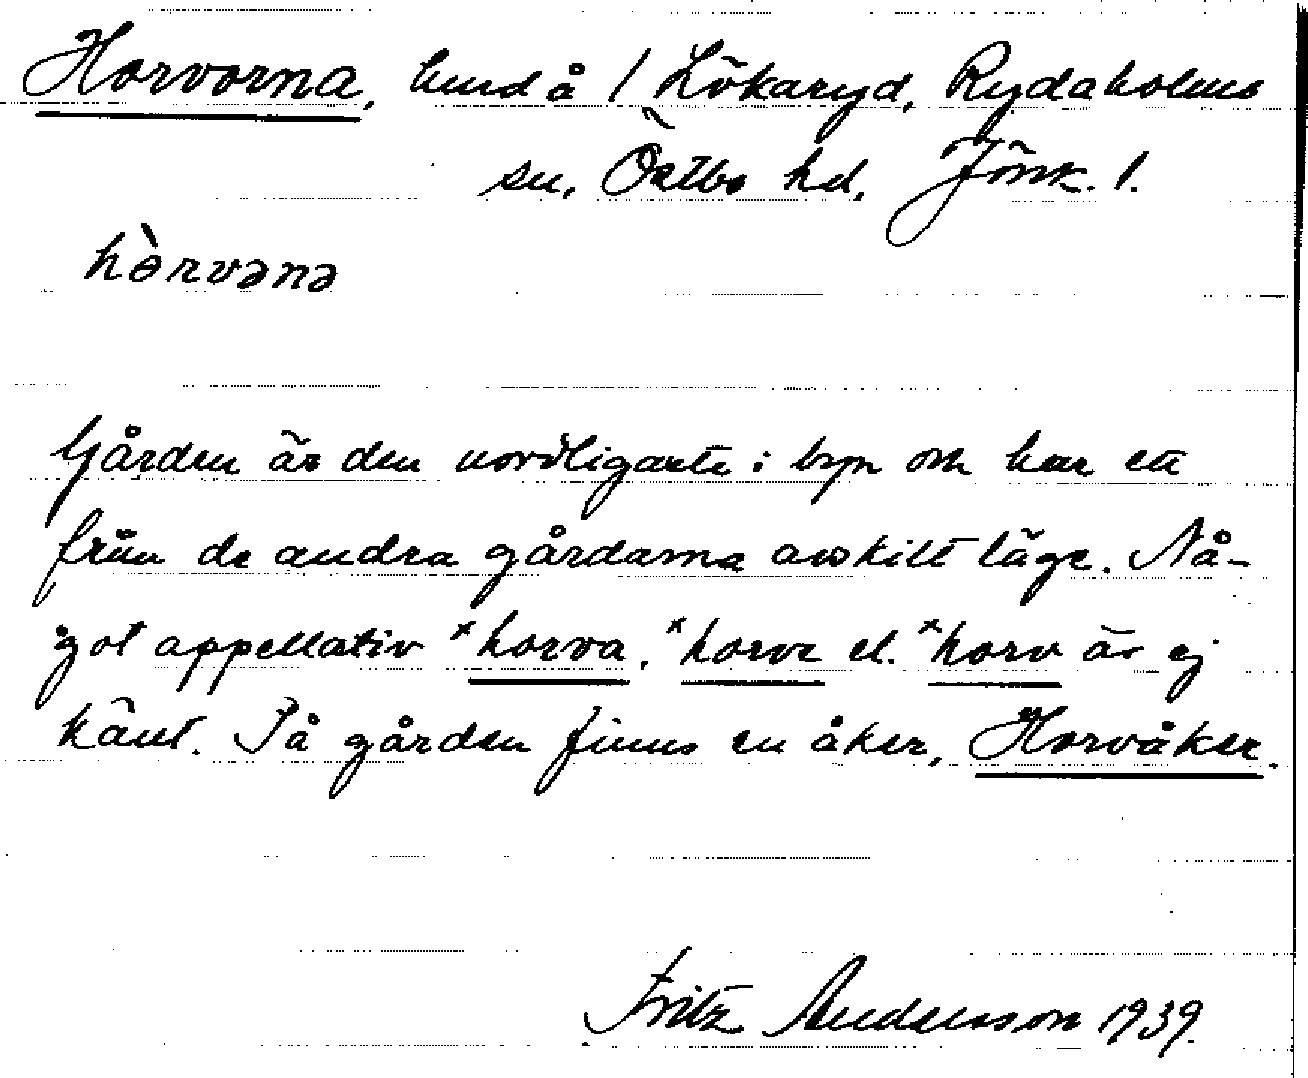 Horvorna, hmd å 1 Lökaryd, Rydaholms
sn, Östbo hd, Jönk. l.
hòrvənə
Gården är den nordligaste i byn och har ett
från de andra gårdarna avskilt läge. Nå-
got appellativ *horva, *horve el. *horv är ej
känt. På gården finns en åker, Horvåker.
Fritz Andersson 1939.